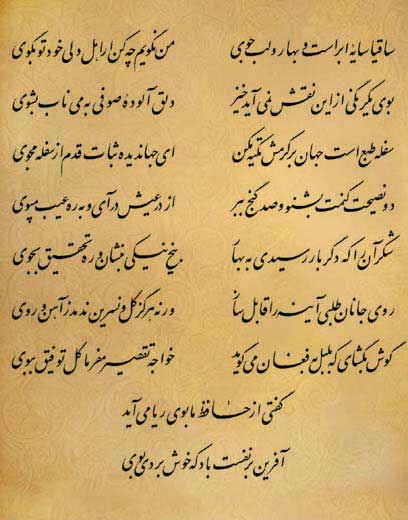 ساقیا سایهٔ ابر است و بهار و لب جوی من نگویم چه کن ار اهل دلی خود تو بگوی
بوی یکرنگی از این نقش نمی‌آید خیز دلق آلودهٔ صوفی به می ناب بشوی
سفله طبع است جهان بر کرمش تکیه مکن ای جهاندیده ثبات قدم از سفله مجوی
دو نصیحت کنمت بشنو و صد گنج ببر از در عیش درآی و به ره عیب مپوی
شکر آن را که دگر بار رسیدی به بهار بیخ نیکی بنشان و ره تحقیق بجوی
روی جانان طلبی آینه را قابل ساز ورنه هرگز گل و نسرین ندمد ز آهن و روی
گوش بگشای که بلبل به فغان می‌گوید خواجه تقصیر مفرما گل توفیق ببوی
گفتی از حافظ ما بوی ریا می‌آید
آفرین بر نفست باد که خوش بردی بوی